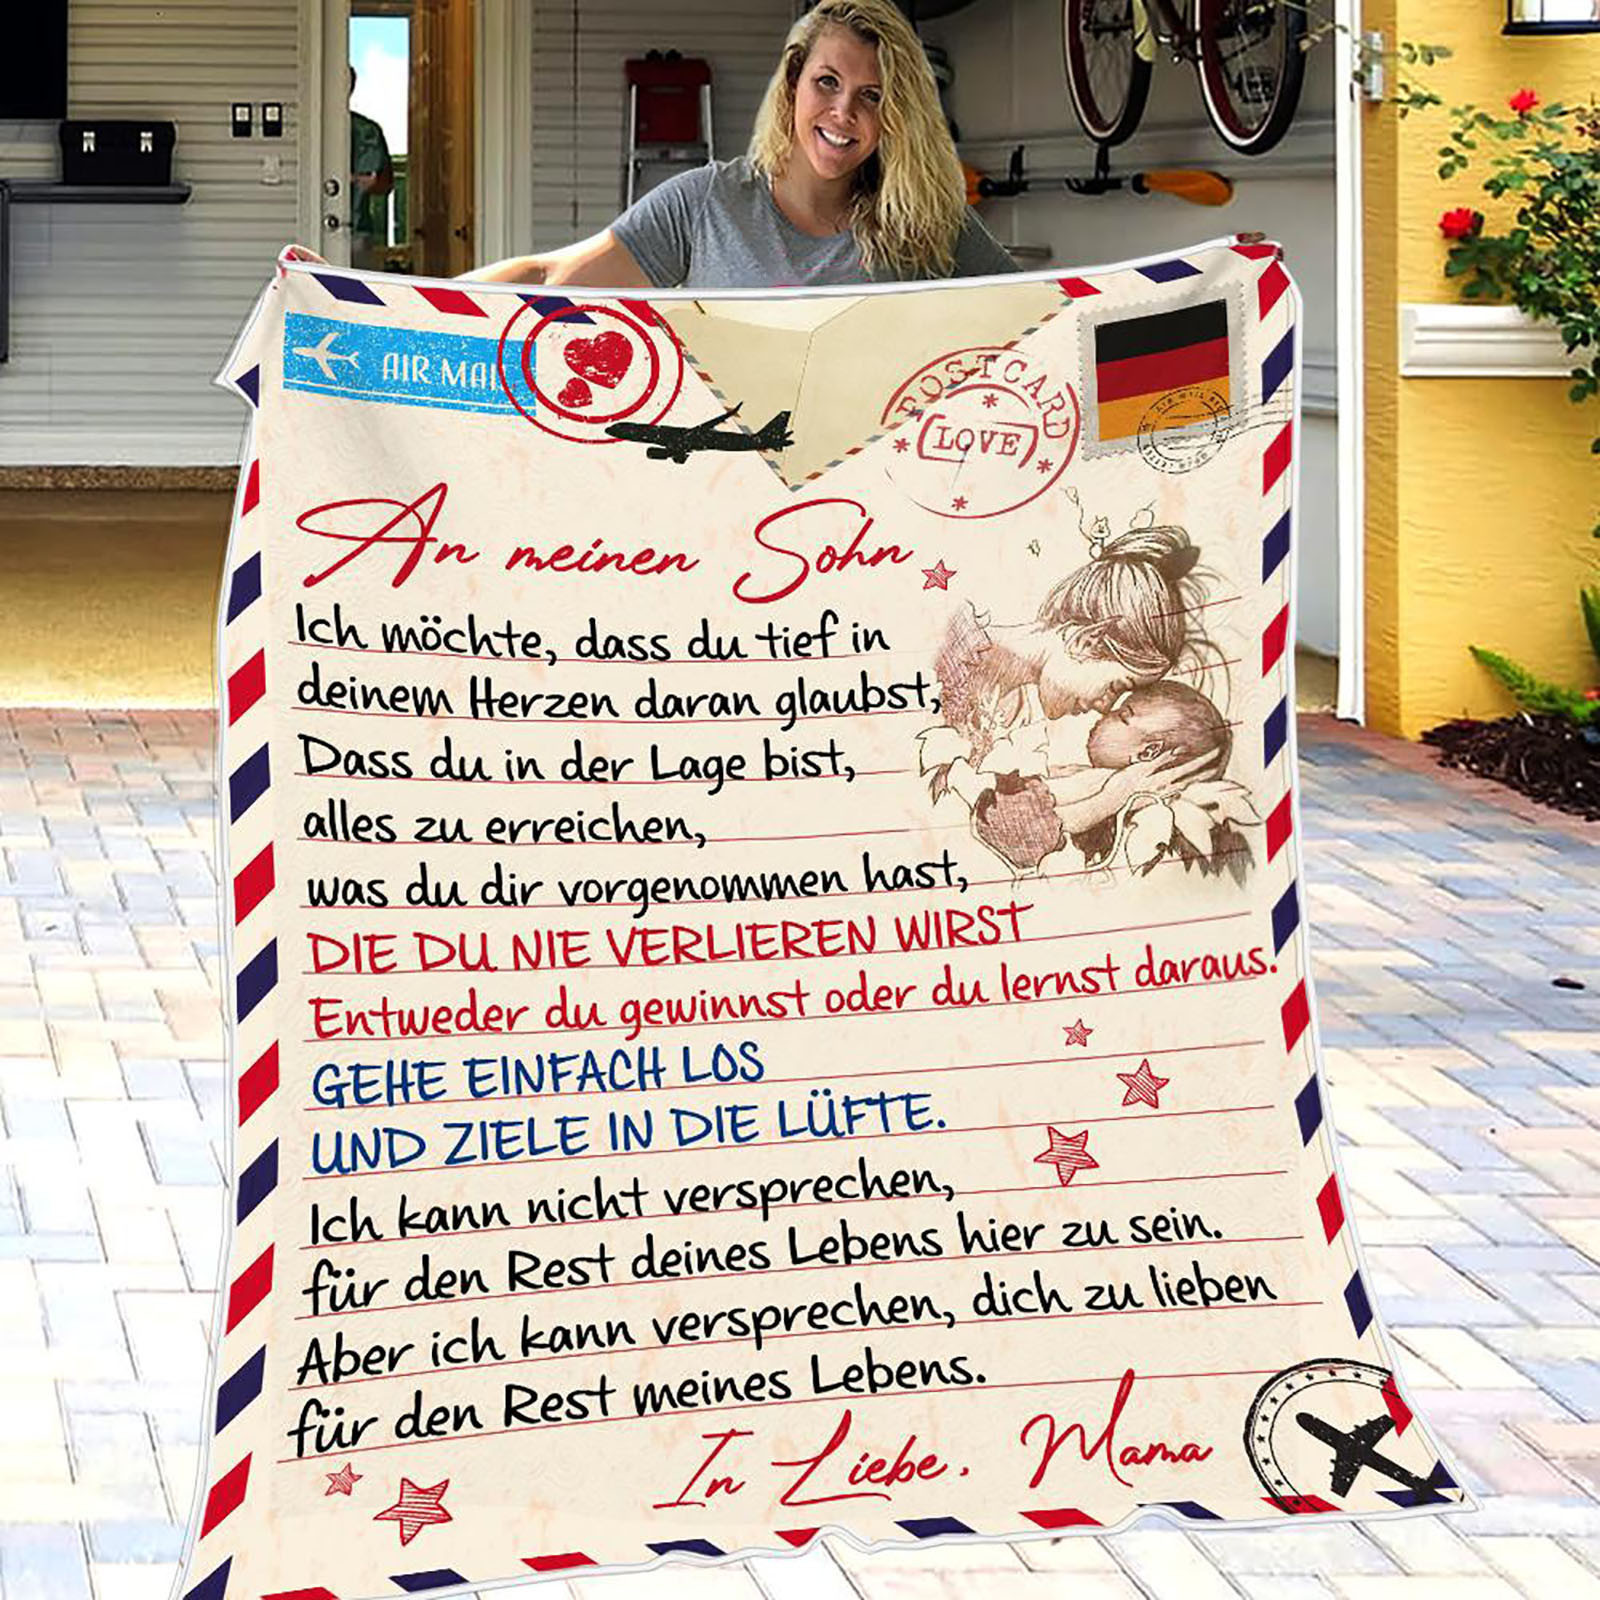 AIR MAI
POSTCARD
LOVE
An meinen Sohn
Ich möchte, dass du tief in
deinem Herzen daran glaubst,
Dass du in der Lage bist,
alles zu erreichen,
was du dir vorgenommen hast,
DIE DU NIE VERLIEREN WIRST
Entweder du gewinnst oder du lernst daraus.
GEHE EINFACH LOS
UND ZIELE IN DIE LÜFTE.
Ich kann nicht versprechen,
für den Rest deines Lebens hier zu sein.
Aber ich kann versprechen, dich zu lieben
für den Rest meines Lebens.
In Liebe, Mama